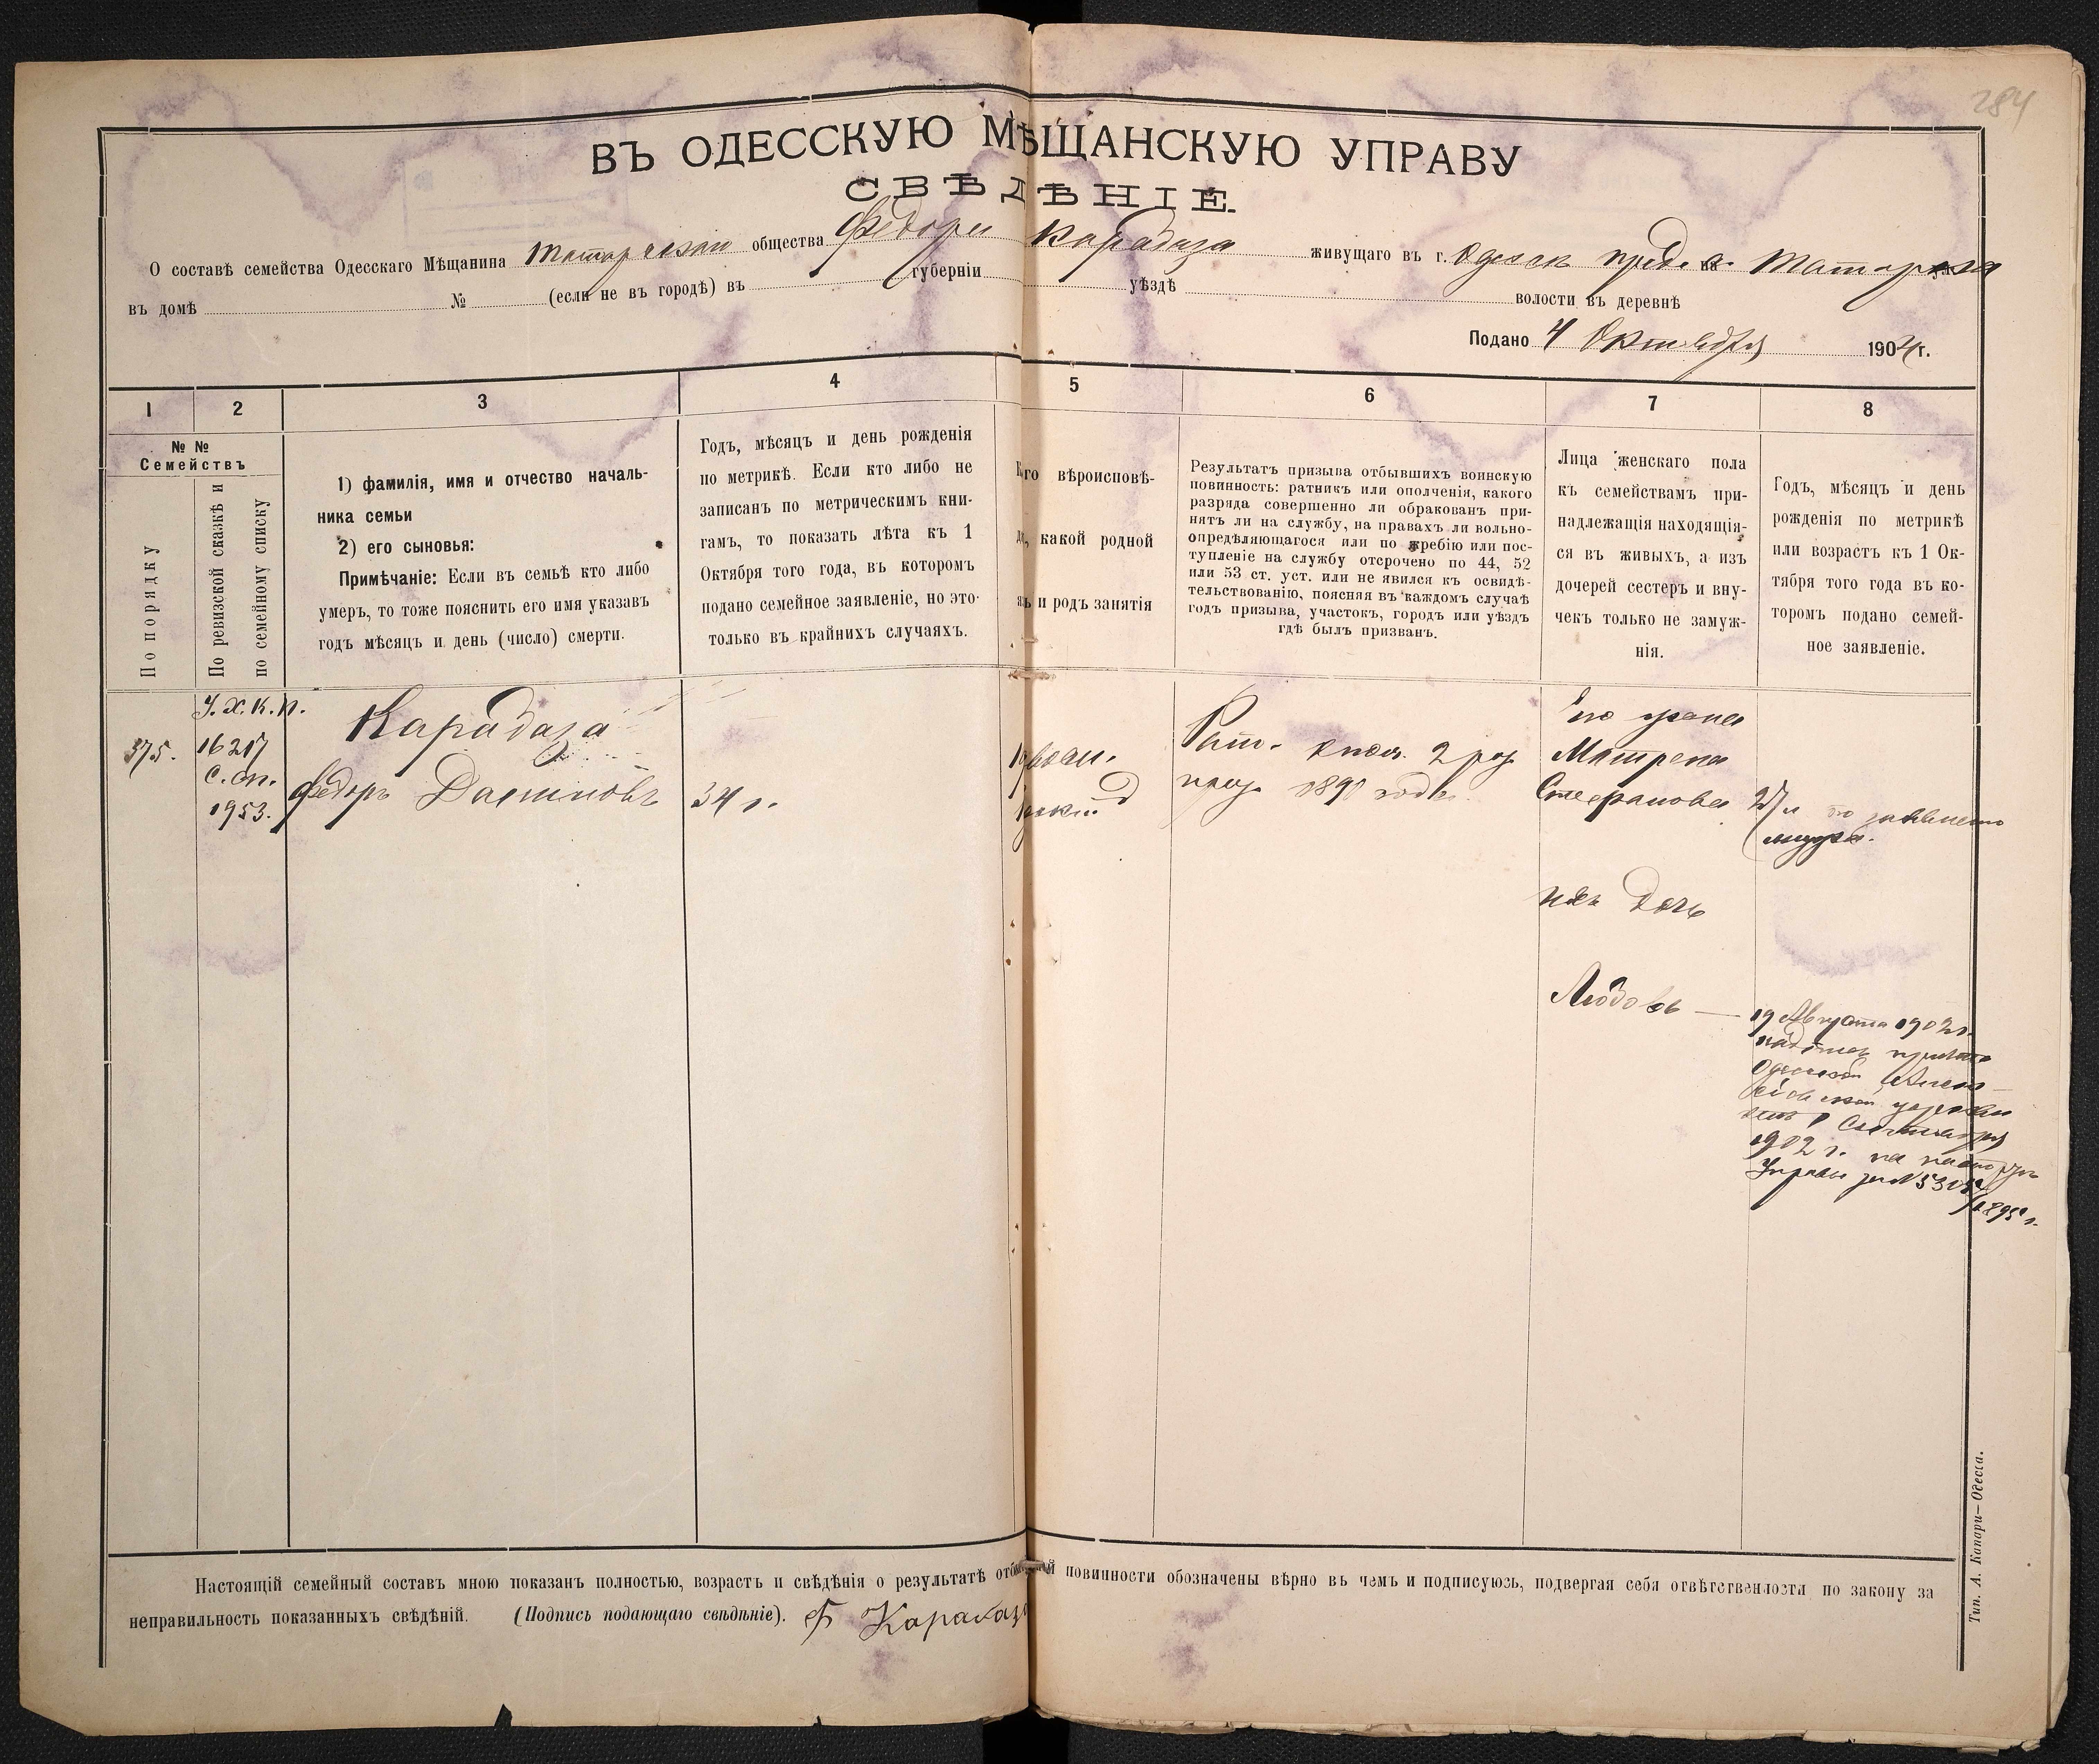 284
ВЪ ОДЕССКУЮ МѢЩАНСКУЮ УПРАВУ
СВѢДѢНІЕ.
О составѣ семейства Одесскаго Мѣщанина общества Федора Карадаза живущаго въ г. Одессѣ на
въ домѣ № (если не въ городѣ) въ губерніи уѣздѣ волости въ деревнѣ
Подано 4 Октября 1904 г.
1 2 3 4 5 6 7 8
№ №
Семействъ
По порядку
По ревизской сказкѣ и
по семейному списку
1) фамилія, имя и отчество началь-
ника семьи
2) его сыновья:
Примѣчаніе: Если въ семьѣ кто либо
умеръ, то тоже пояснить его имя указавъ
годъ мѣсяцъ и день (число) смерти.
Годъ, мѣсяцъ и день рожденія
по метрикѣ. Если кто либо не
записанъ по метрическимъ кни-
гамъ, то показать лѣта къ 1
Октября того года, въ которомъ
подано семейное заявленіе, но это-
только въ крайнихъ случаяхъ.
вѣроисповѣ-
какой родной
и родъ занятія
Результатъ призыва отбывшихъ воинскую
повинность: ратникъ или ополченія, какого
разряда совершенно ли обракованъ при-
нятъ ли на службу, на правахъ ли вольно-
опредѣляющагося или по жребію или пос-
тупленіе на службу отсрочено по 44, 52
или 53 ст. уст. или не явился къ освидѣ-
тельствованію, поясняя въ каждомъ случаѣ
годъ призыва, участокъ, городъ или уѣздъ
гдѣ былъ призванъ.
Лица женскаго пола
къ семействамъ при-
надлежащія находящія-
ся въ живыхъ, а изъ
дочерей сестеръ и вну-
чекъ только не замуж-
нія.
Годъ, мѣсяцъ и день
рожденія по метрикѣ
или возрастъ къ 1 Ок-
тября того года въ ко-
торомъ подано семей-
ное заявленіе.
375.
16217
С. сп.
1953.
Карадаза
Федоръ
34 г.
Рат. опол. 2 раз
Его жена
Матрена
Стефанова
ихъ дочь
Любовь —
19 Августа 1902 г.
1902 г. на
Управы за №
Настоящій семейный составъ мною показанъ полностью, возрастъ и свѣдѣнія о результатѣ повинности обозначены вѣрно въ чемъ и подписуюсь, подвергая себя отвѣтственности по закону за
неправильность показанныхъ свѣдѣній. (Подпись подающаго свѣдѣніе).
Тип. А. Капари—Одесса.